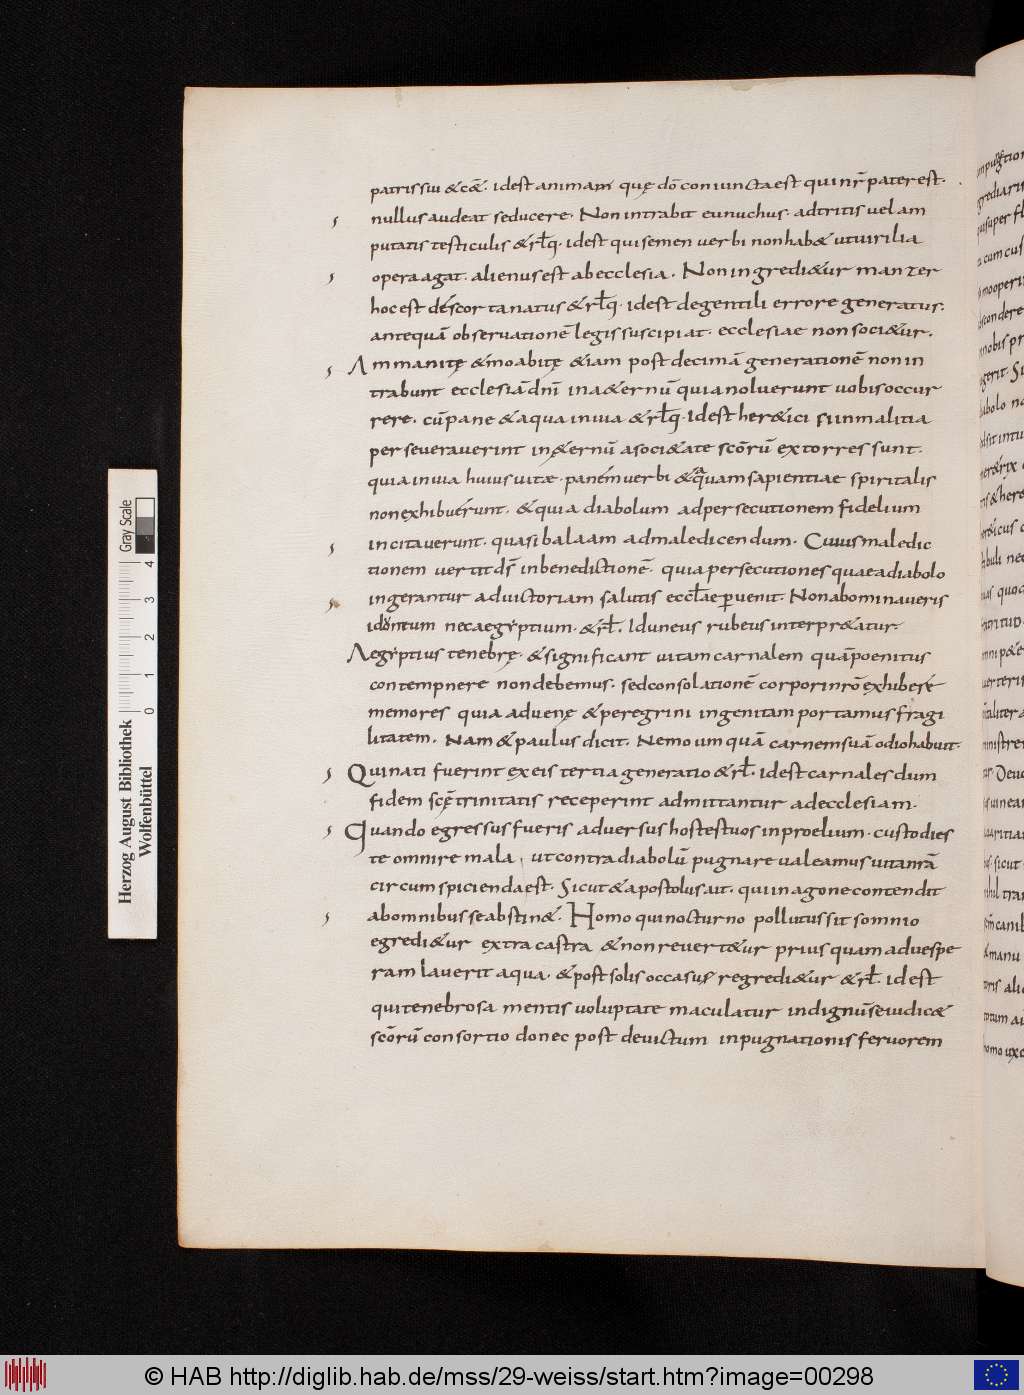 patris sui &cẽ. idest animam quę dõ coniuncta est qui nr̃ pater est.
nullus audeat seducere. Non intrabit eunuchus. adtritis uel am
putatis testiculis & rłq. idest qui semen uerbi non hab& ut uirilia
opera agat. alienus est ab ecclesia. Non ingredi&ur manzer
hoc est de scortanatus & rłq. idest de gentili errore generatus.
antequã obseruationẽ legis suscipiat. ecclesiae non soci&ur.
Ammanitę & moabitę & iam post decimã generationẽ non in
trabunt ecclesiã dñi in a&ernũ quia noluerunt uobis occur
rere. cũ pane & aqua in uia & rłq. Idest her&ici si in malitia
perseuerauerint in ę&ernũ a soci&ate scõrũ extorres sunt.
quia in uia huius uitae. panem uerbi & aquam sapientiae spiritalis
non exhibuerunt. & quia diabolum ad persecutionem fidelium
incitauerunt. quasi balaam ad maledicendum. Cuius maledic
tionem uertit ds̃ in benedictionẽ. quia persecutiones quae a diabolo
ingerantur ad uictoriam salutis eccłae peruenit. Non abominaueris
idontum nec aegyptium. & rł. Idumeus rubeus interpr&atur.
Aegyptius tenebrę. & significant uitam carnalem quã poenitus
contempnere non debemus. sed consolationẽ corpori nrõ exhibere
memores quia aduenę & peregrini ingenitam portamus fragi
litatem. Nam & paulus dicit. Nemo umquã carnem suã odio habuit.
Qui nati fuerint ex eis tertia generatio & rł. idest carnales dum
fidem scę trinitatis receperint admittantur ad ecclesiam.
Quando egressus fueris aduersus hostes tuos in proelium. custodies
te omni re mala, ut contra diabolũ pugnare ualeamus uita nrã
circumspicienda est. Sicut & apostolus ait. qui in agone contendit
ab omnibus se abstin&. Homo qui nocturno pollutus sit somnio
egredi&ur extra castra & non reuert&ur prius quam ad uespe
ram lauerit aqua. & post solis occasus regredi&ur & rł. idest
qui tenebrosa mentis uoluptate maculatur indignũ se iudic&
scõrũ consortio donec post deuictum inpugnationis feruorem
Herzog August Bibliothek
Wolfenbüttel
Gray Scale
0 1 2 3 4
© HAB http://diglib.hab.de/mss/29-weiss/start.htm?image=00298